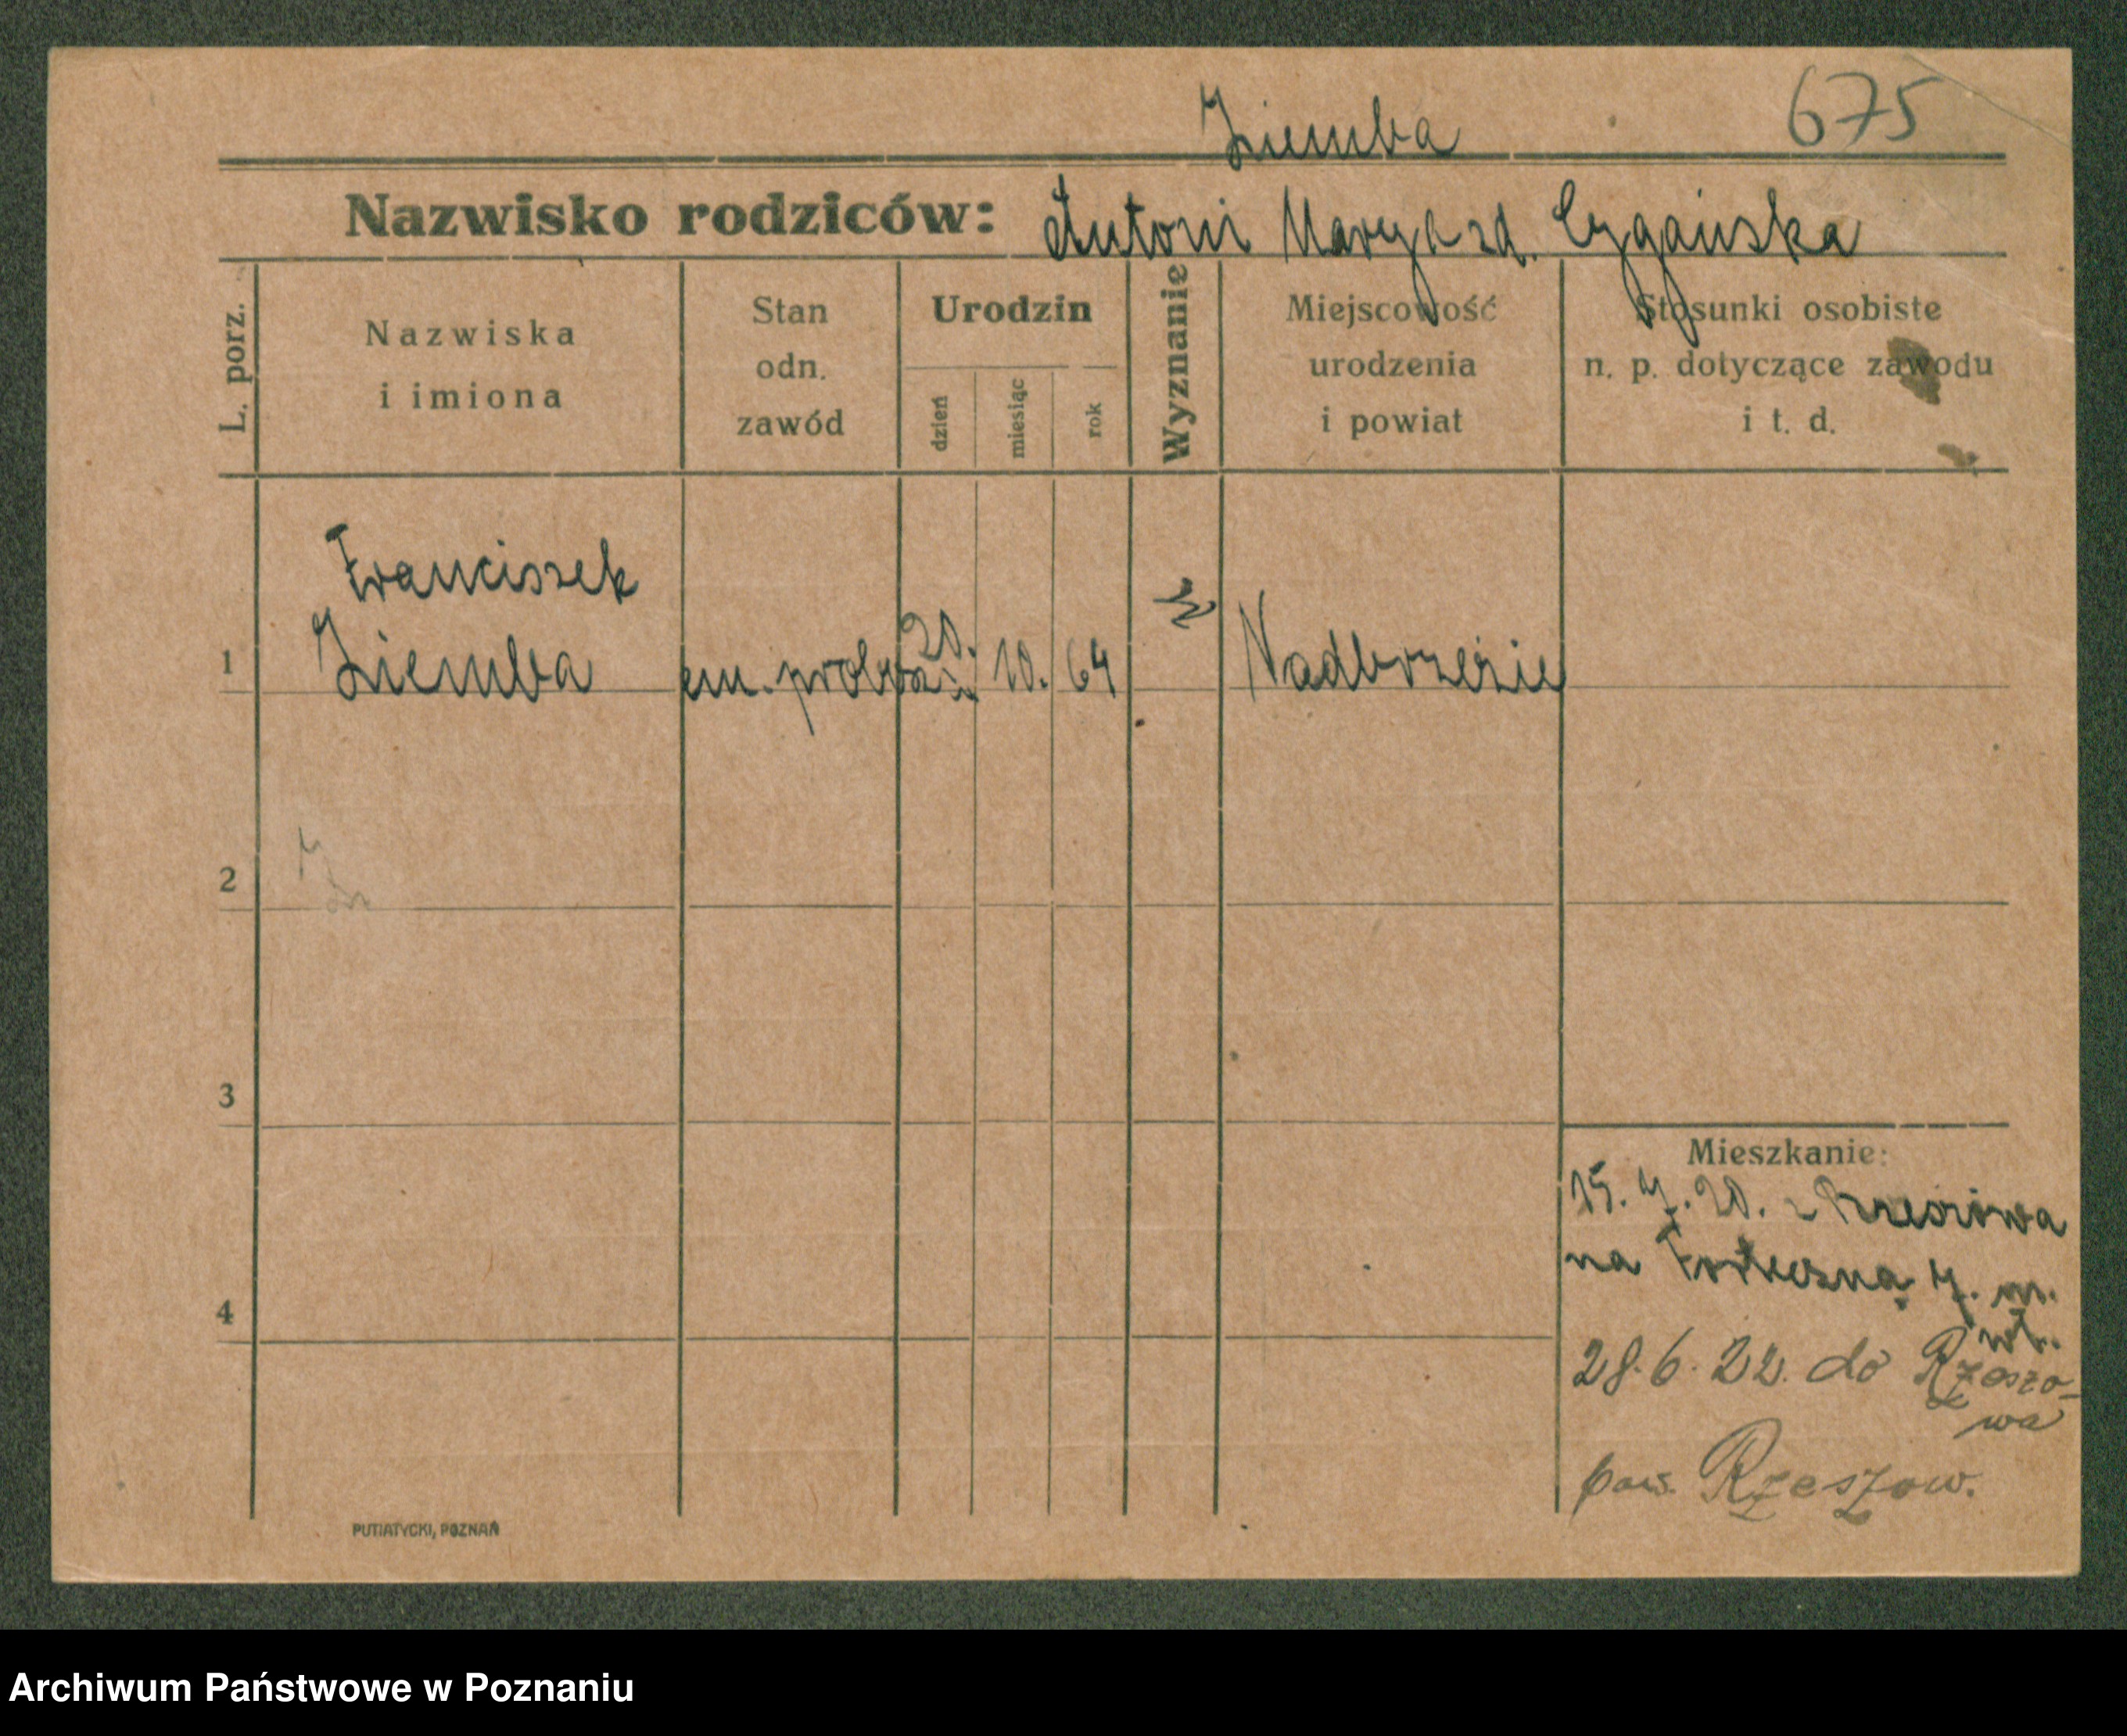 675
Ziemba
Nazwisko rodziców: Antoni Marya zd. Cygańska
L. porz.
Nazwiska
i imiona
Stan
odn.
zawód
Urodzin
dzień
miesiąc
rok
Wyznanie
Miejscowość
urodzenia
i powiat
Stosunki osobiste
n. p. dotyczące zawodu
i t. d.
Franciszek
1 Ziemba em. 20. 10. 64 Nadbrzezie
2
3
4
Mieszkanie:
15. 7. 20. z Rzeszowa
na Forteczną 7. m.
wł.
28. 6. 22. do Rzeszo-
wa
pow. Rzeszow.
PUTIATYCKI, POZNAŃ
Archiwum Państwowe w Poznaniu